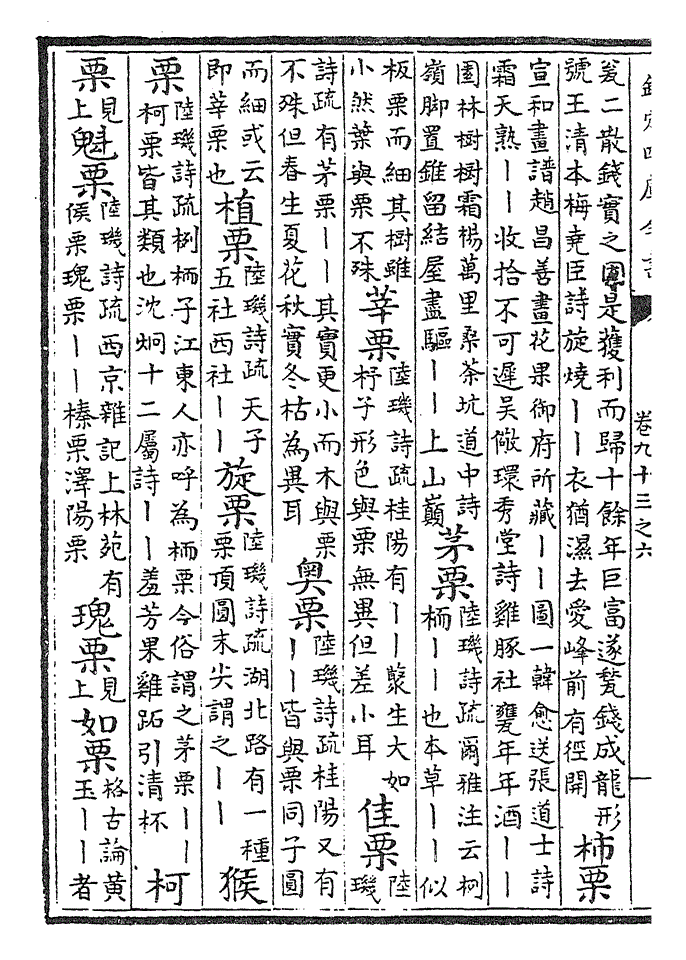 欽定四庫全書
卷九十三之六
瓮二散錢實之圍是獲利而歸十餘年巨富遂甃錢成龍形
號王清本梅堯臣詩旋燒丨丨衣猶濕去愛峰前有徑開
柿栗
宣和畫譜趙昌善畫花果御府所藏丨丨圖一韓愈送張道士詩
霜天熟丨丨收拾不可遲吳儆環秀堂詩雞豚社甕年年酒丨丨
園林樹樹霜楊萬里桑茶坑道中詩
嶺脚置錐留結屋盡驅丨丨上山巔
茅栗
陸璣詩疏爾雅注云栵
栭丨丨也本草丨丨似
板栗而細其樹雖
小然葉與栗不殊
莘栗
陸璣詩疏桂陽有丨丨藂生大如
杼子形色與栗無異但差小耳
佳栗
陸
璣
詩疏有茅栗丨丨其實更小而木與栗
不殊但春生夏花秋實冬枯為異耳
奧栗
陸璣詩疏桂陽又有
丨丨皆與栗同子圓
而細或云
即莘栗也
植栗
陸璣詩疏天子
五社西社丨丨
旋栗
陸璣詩疏湖北路有一種
栗頂圓末尖謂之丨丨
猴
栗
陸璣詩疏栵栭子江東人亦呼為栭栗今俗謂之茅栗丨丨
柯栗皆其類也沈炯十二屬詩丨丨羞芳果雞跖引清杯
柯
栗
見
上
魁栗
陸璣詩疏西京雜記上林苑有
侯栗瑰栗丨丨榛栗澤陽栗
瑰栗
見
上
如栗
格古論黃
玉丨丨者